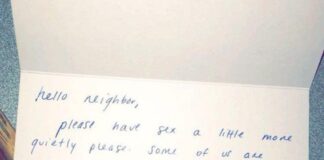 hello neighbor,
please have sex a little more
quietly please. Some of us are